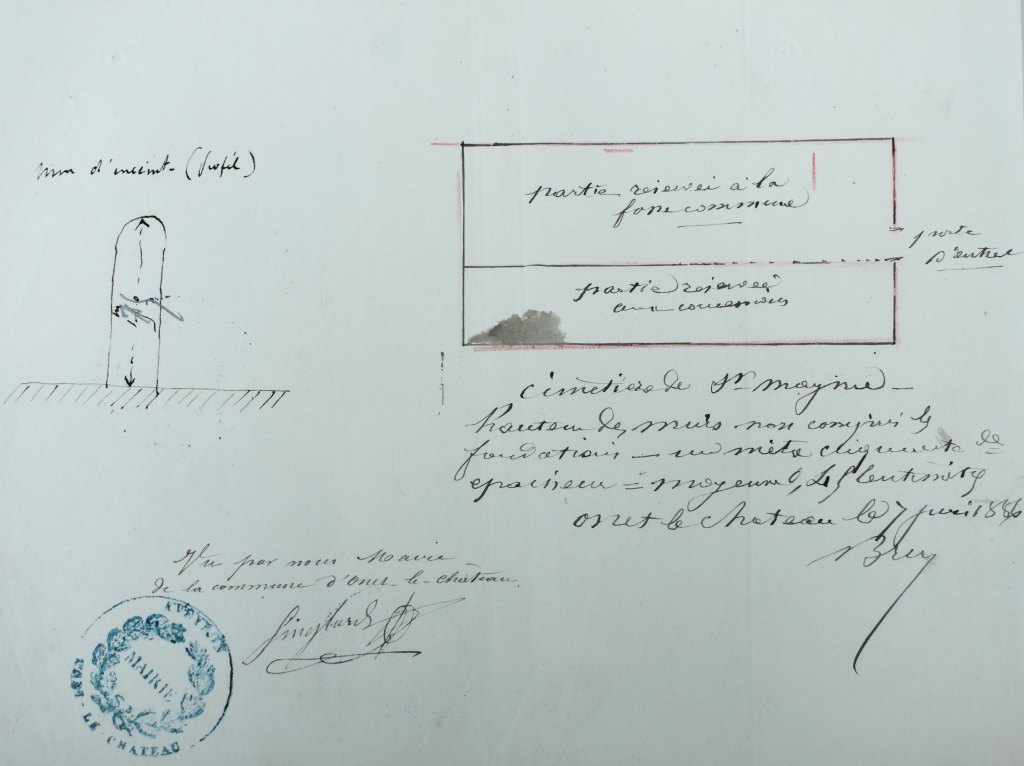 mur d'enceint - (profil)
partie reservée à la
fosse commune
porte
d'entrée
partie reservée
aux concessions
Cimetiere de St mayme -
hauteur des murs non compris les
fondations - un mètre cinquante
epaisseur = moyenne 0,45 Centimètres
onet le chateau le 7 juin 1886
Brey
Vu par nous Maire
de la commune d'Onet-le-Château.
AVEYRON
MAIRIE
LE CHATEAU